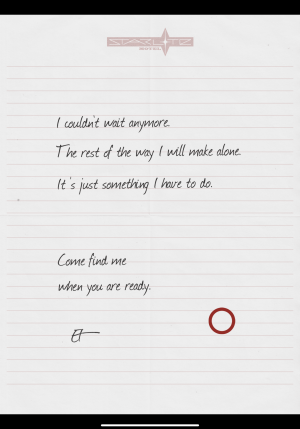 STARLITE
I couldn't wait anymore.
The rest of the way I will make alone.
It's just something I have to do.
Come find me
when you are ready.